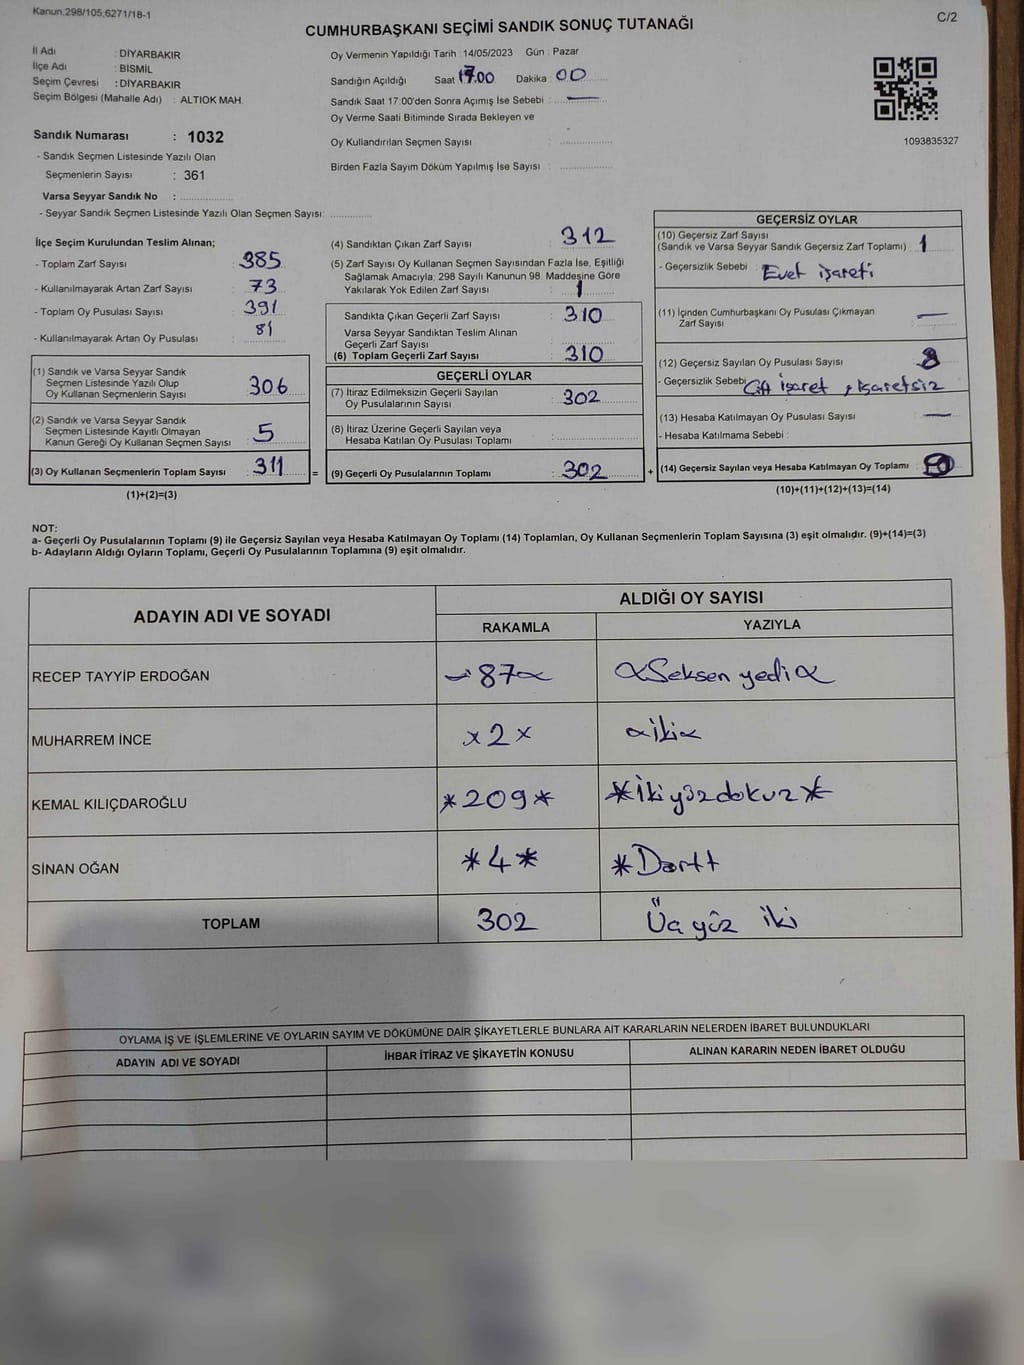 Kanun.298/105;6271/18-1
C/2
CUMHURBAŞKANI SEÇİMİ SANDIK SONUÇ TUTANAĞI
İl Adı : DİYARBAKIR
İlçe Adı : BİSMİL
Seçim Çevresi : DİYARBAKIR
Seçim Bölgesi (Mahalle Adı) : ALTIOK MAH.
Sandık Numarası : 1032
- Sandık Seçmen Listesinde Yazılı Olan
Seçmenlerin Sayısı : 361
Varsa Seyyar Sandık No :
- Seyyar Sandık Seçmen Listesinde Yazılı Olan Seçmen Sayısı:
Oy Vermenin Yapıldığı Tarih : 14/05/2023 Gün : Pazar
Sandığın Açıldığı Saat 17.00 Dakika : 00
Sandık Saat 17:00'den Sonra Açımış İse Sebebi : —
Oy Verme Saati Bitiminde Sırada Bekleyen ve
Oy Kullandırılan Seçmen Sayısı :
Birden Fazla Sayım Döküm Yapılmış İse Sayısı :
1093835327
İlçe Seçim Kurulundan Teslim Alınan;
- Toplam Zarf Sayısı : 385
- Kullanılmayarak Artan Zarf Sayısı : 73
- Toplam Oy Pusulası Sayısı : 391
- Kullanılmayarak Artan Oy Pusulası : 81
(1) Sandık ve Varsa Seyyar Sandık
Seçmen Listesinde Yazılı Olup
Oy Kullanan Seçmenlerin Sayısı : 306
(2) Sandık ve Varsa Seyyar Sandık
Seçmen Listesinde Kayıtlı Olmayan
Kanun Gereği Oy Kullanan Seçmen Sayısı : 5
(3) Oy Kullanan Seçmenlerin Toplam Sayısı : 311 =
(1)+(2)=(3)
(4) Sandıktan Çıkan Zarf Sayısı : 312
(5) Zarf Sayısı Oy Kullanan Seçmen Sayısından Fazla İse, Eşitliği
Sağlamak Amacıyla; 298 Sayılı Kanunun 98. Maddesine Göre
Yakılarak Yok Edilen Zarf Sayısı : 1
Sandıkta Çıkan Geçerli Zarf Sayısı : 310
Varsa Seyyar Sandıktan Teslim Alınan
Geçerli Zarf Sayısı :
(6) Toplam Geçerli Zarf Sayısı : 310
GEÇERLİ OYLAR
(7) İtiraz Edilmeksizin Geçerli Sayılan
Oy Pusulalarının Sayısı : 302
(8) İtiraz Üzerine Geçerli Sayılan veya
Hesaba Katılan Oy Pusulası Toplamı :
(9) Geçerli Oy Pusulalarının Toplamı : 302 +
GEÇERSİZ OYLAR
(10) Geçersiz Zarf Sayısı
(Sandık ve Varsa Seyyar Sandık Geçersiz Zarf Toplamı) : 1
- Geçersizlik Sebebi : Evet işareti
(11) İçinden Cumhurbaşkanı Oy Pusulası Çıkmayan
Zarf Sayısı : —
(12) Geçersiz Sayılan Oy Pusulası Sayısı : 8
- Geçersizlik Sebebi : Çift İşaret , işaretsiz
(13) Hesaba Katılmayan Oy Pusulası Sayısı : —
- Hesaba Katılmama Sebebi :
(14) Geçersiz Sayılan veya Hesaba Katılmayan Oy Toplamı :
(10)+(11)+(12)+(13)=(14)
NOT:
a- Geçerli Oy Pusulalarının Toplamı (9) ile Geçersiz Sayılan veya Hesaba Katılmayan Oy Toplamı (14) Toplamları, Oy Kullanan Seçmenlerin Toplam Sayısına (3) eşit olmalıdır. (9)+(14)=(3)
b- Adayların Aldığı Oyların Toplamı, Geçerli Oy Pusulalarının Toplamına (9) eşit olmalıdır.
ADAYIN ADI VE SOYADI
ALDIĞI OY SAYISI
RAKAMLA YAZIYLA
RECEP TAYYİP ERDOĞAN 87 Seksen yedi
MUHARREM İNCE x 2 x iki
KEMAL KILIÇDAROĞLU *209* *İki yüz dokuz*
SİNAN OĞAN *4* *Dörtt
TOPLAM 302 Üç yüz iki
OYLAMA İŞ VE İŞLEMLERİNE VE OYLARIN SAYIM VE DÖKÜMÜNE DAİR ŞİKAYETLERLE BUNLARA AİT KARARLARIN NELERDEN İBARET BULUNDUKLARI
ADAYIN ADI VE SOYADI İHBAR İTİRAZ VE ŞİKAYETİN KONUSU ALINAN KARARIN NEDEN İBARET OLDUĞU